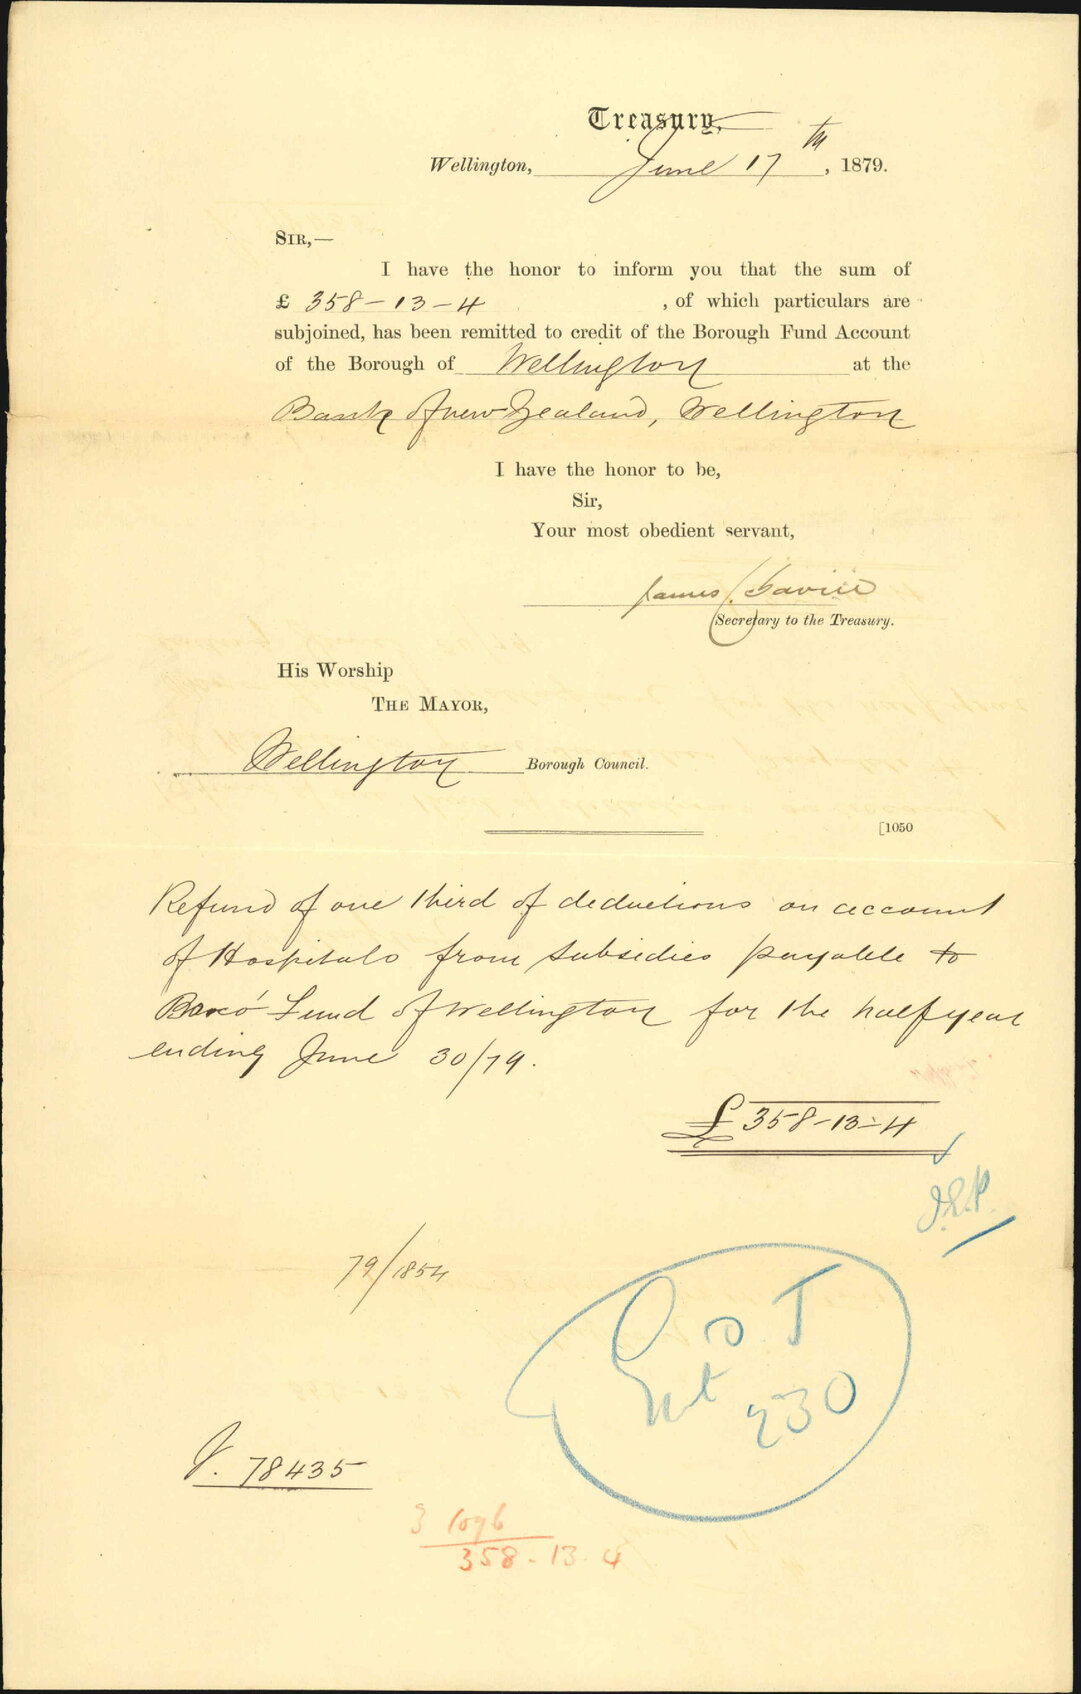 Treasury,
Wellington, June 17th, 1879.
SIR,—
I have the honor to inform you that the sum of
£ 358-13-4 , of which particulars are
subjoined, has been remitted to credit of the Borough Fund Account
of the Borough of Wellington at the
Bank of New Zealand, Wellington
I have the honor to be,
Sir,
Your most obedient servant,
James
Secretary to the Treasury.
His Worship
THE MAYOR,
Wellington Borough Council.
[1050
Refund of one third of deductions on account
of Hospitals from subsidies payable to
Boro' Fund of Wellington for the half year
ending June 30/79.
£ 358-13-4
79/1854
T
230
V. 78435
3 1076
358-13-4